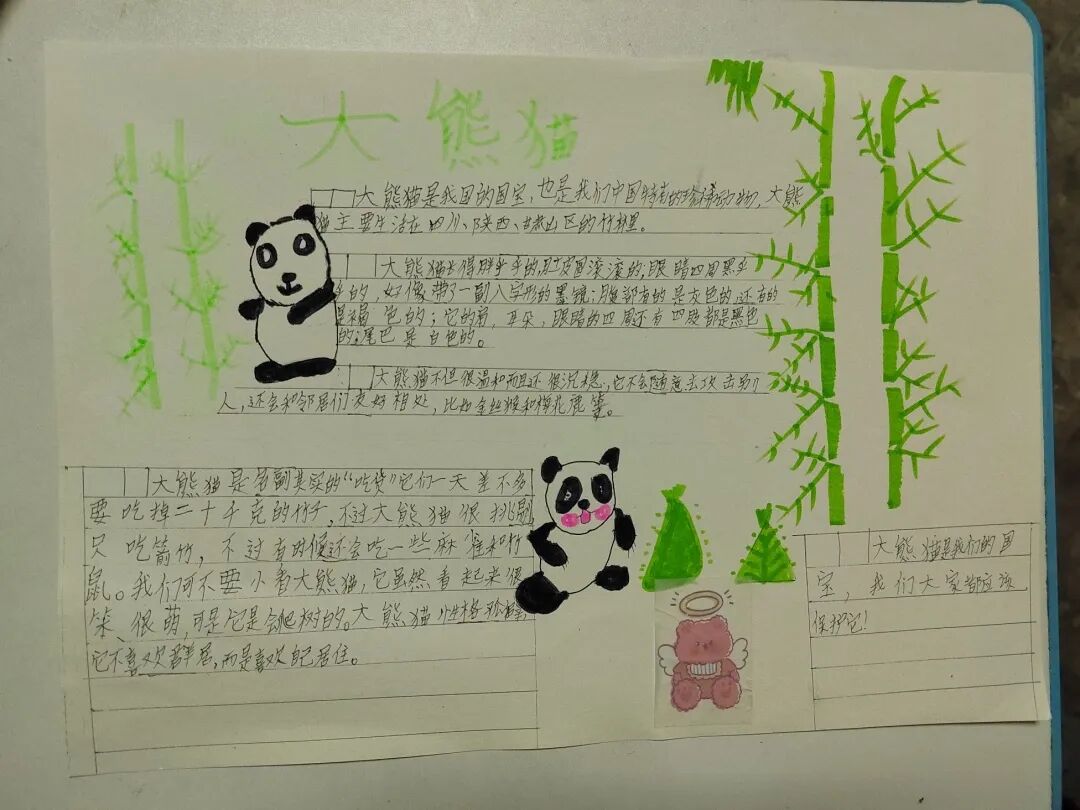 大熊猫
大熊猫是我国的国宝，也是我们中国特有的珍稀动物，大熊
猫主要生活在四川、陕西、甘肃山区的竹林里。
大熊猫长得胖乎乎的，肚皮圆滚滚的，眼睛四周黑乎
乎的，好像带了一副八字形的墨镜；腹部有的是灰色的，还有的
是褐色的；它的肩，耳朵，眼睛的四周还有四肢都是黑色
的；尾巴是白色的。
大熊猫不但很温和而且还很沉稳，它不会随意去攻击别
人，还会和邻居们友好相处，比如金丝猴和梅花鹿等。
大熊猫是名副其实的“吃货”它们一天差不多
要吃掉二十千克的竹子，不过大熊猫很挑剔
只吃箭竹，不过有时候还会吃一些麻雀和竹
鼠。我们可不要小看大熊猫，它虽然看起来很
笨、很萌，可是它是会爬树的。大熊猫性格
它不喜欢群居，而是喜欢自己居住。
大熊猫是我们的国
宝，我们大家都应该
保护它！